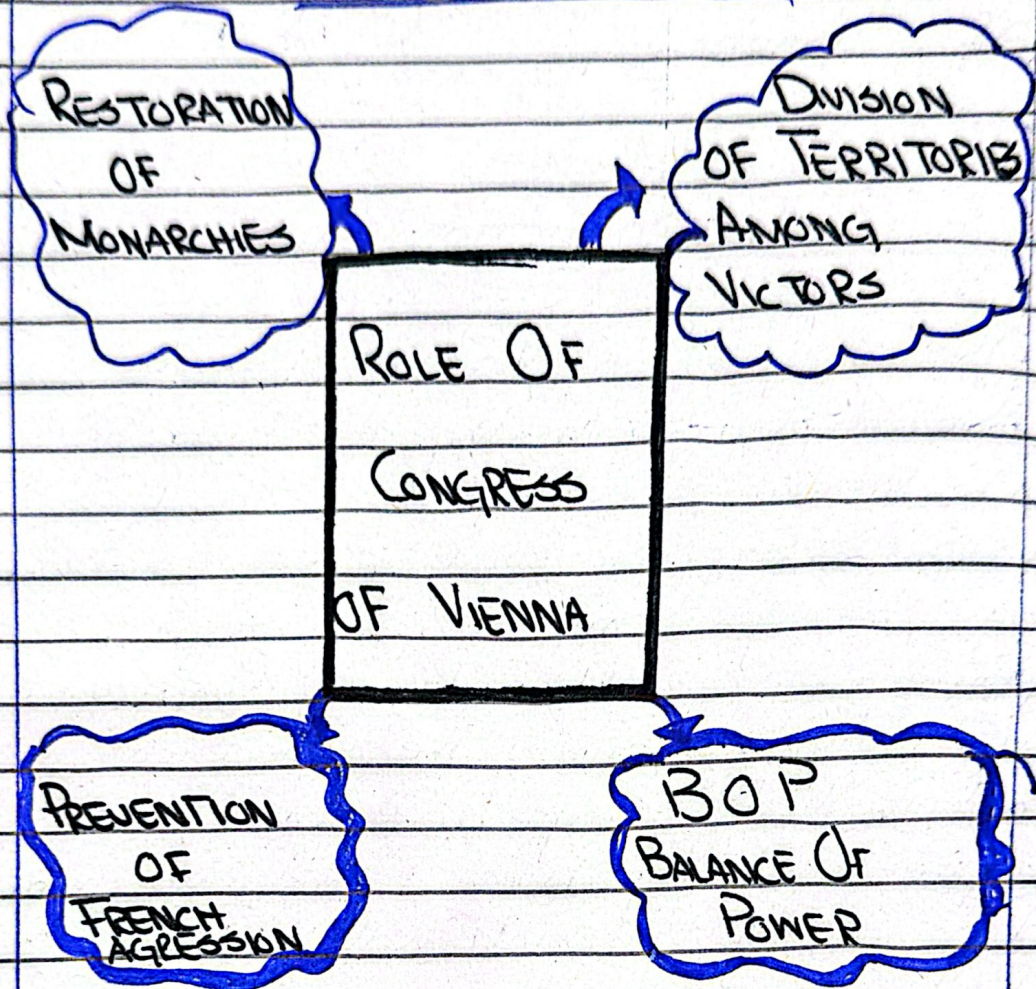 RESTORATION
OF
MONARCHIES
DIVISION
OF TERRITORIES
AMONG
VICTORS
ROLE OF
CONGRESS
OF VIENNA
PREVENTION
OF
FRENCH
AGRESSION
BOP
BALANCE OF
POWER